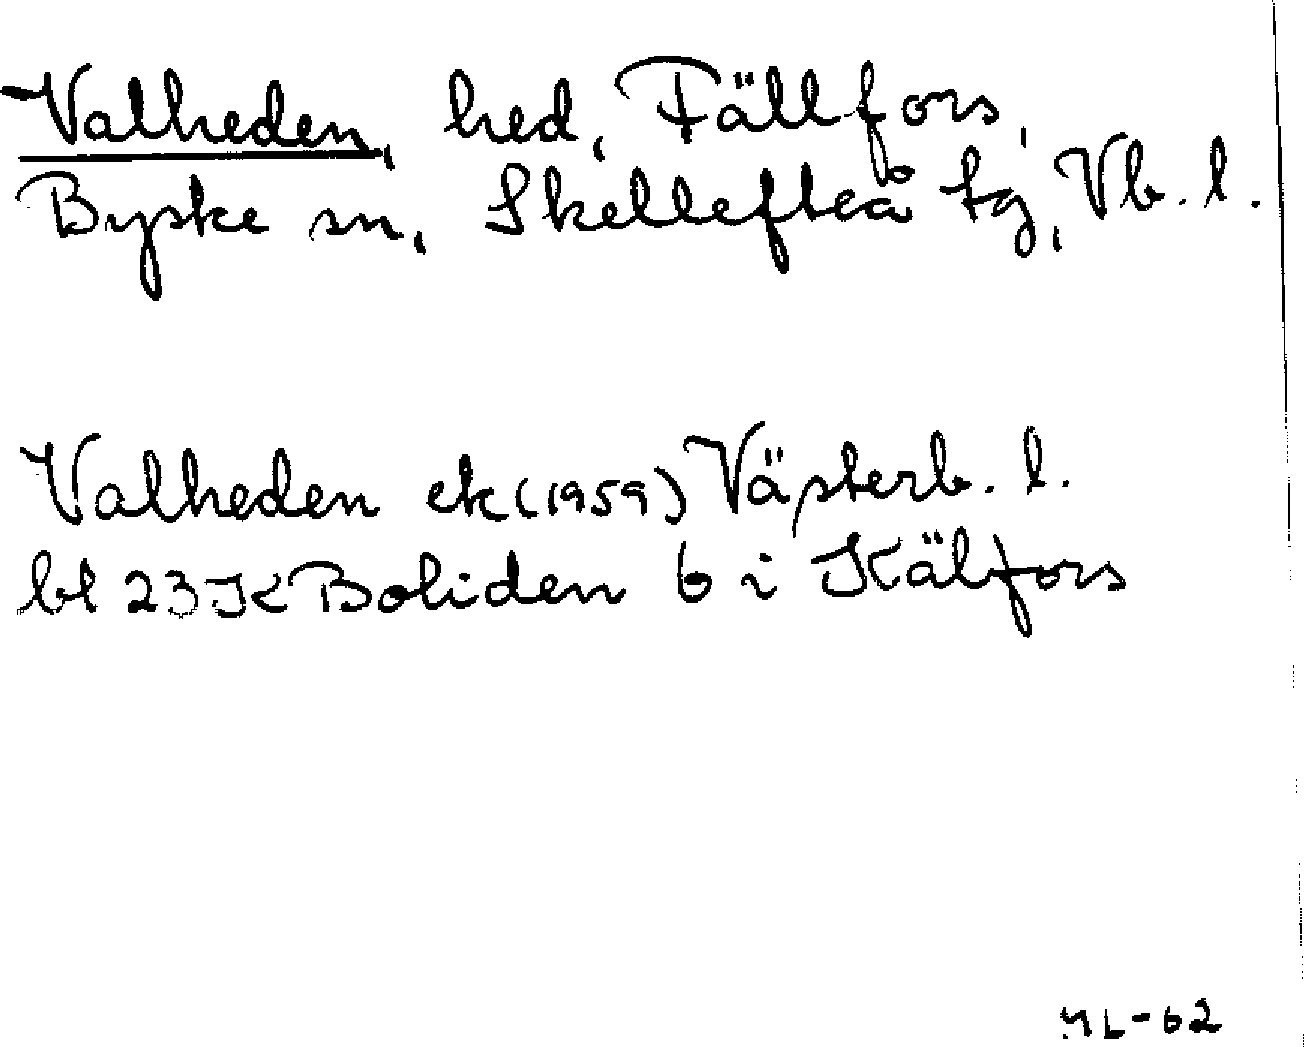 Valheden, hed, Fällfors,
Byske sn, Skellefteå tg, Vb. l.
Valheden ek (1959) Västerb. l.
bl 23K Boliden b i Kälfors